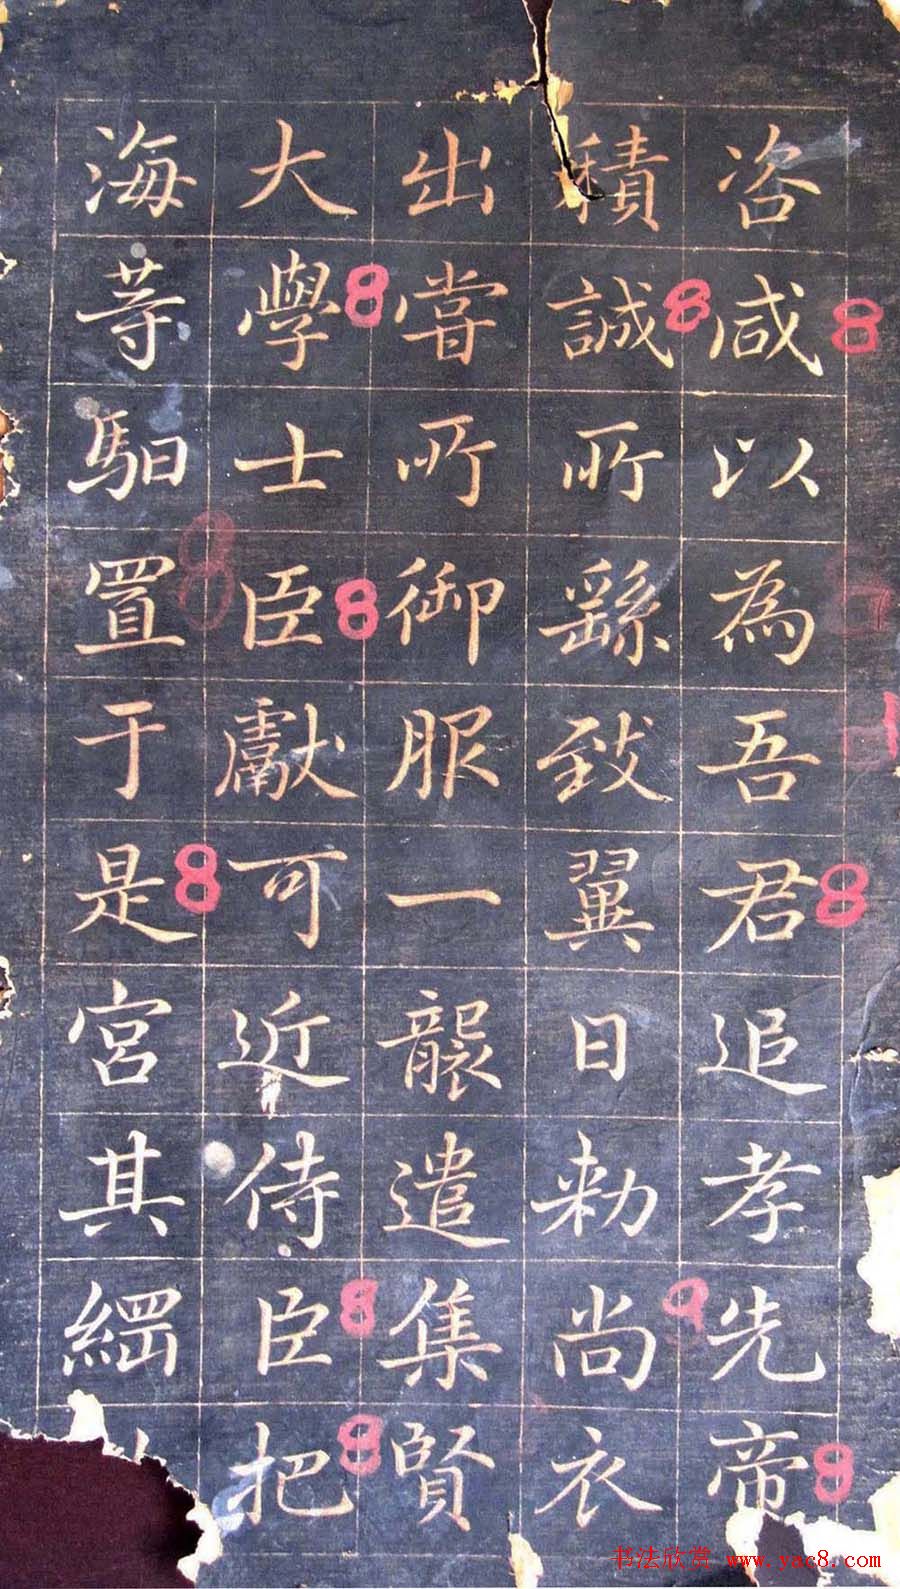 咨咸以為吾君追孝先帝
積誠所繇致翼日勑尚衣
出嘗所御服一襲遣集賢
大學士臣獻可近侍臣把
海䓁馹置于是宮其繝
书法欣赏 www.yac8.com